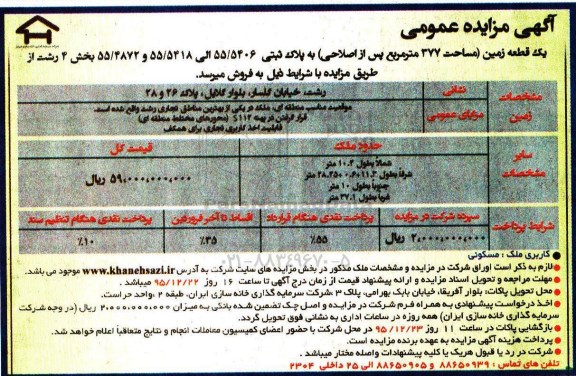 آگهی مزایده عمومی
یک قطعه زمین (مساحت ۳۷۷ مترمربع پس از اصلاحی) به پلاک ثبتی ۵۵/۵۴۰۶ الی ۵۵/۵۴۱۸ و ۵۵/۴۸۷۲ بخش ۴ رشت از
طریق مزایده با شرایط ذیل به فروش میرسد.
مشخصات زمین
نشانی
رشت، خیابان گلسار، بلوار گلایل، پلاک ۲۶ و ۲۸
مزایای عمومی
موقعیت مناسب منطقه ای، ملک در یکی از بهترین مناطق تجاری رشت واقع شده است.
قرار گرفتن در پهنه S۱۱۲ (محورهای مختلط منطقه ای)
قابلیت اخذ کاربری تجاری برای همکف
سایر مشخصات
حدود ملک
قیمت کل
شمالاً بطول ۱۰.۴ متر
شرقاً بطول
جنوباً بطول ۱۰ متر
غرباً بطول ۳۷.۱ متر
۵۹،۰۰۰،۰۰۰،۰۰۰ ریال
شرایط پرداخت
سپرده شرکت در مزایده
پرداخت نقدی هنگام قرارداد
اقساط تا آخر فروردین
پرداخت نقدی هنگام تنظیم سند
۲،۰۰۰،۰۰۰،۰۰۰ ریال
٪۵۵
٪۳۵
٪۱۰
۰۲۱-۸۸۳۴۹۶۷۰-۵
کاربری ملک : مسکونی
لازم به ذکر است اوراق شرکت در مزایده و مشخصات ملک مذکور در بخش مزایده های سایت شرکت به آدرس www.khanehsazi.ir موجود می باشد.
مهلت مراجعه و تحویل اسناد مزایده و ارائه پیشنهاد قیمت از زمان درج آگهی تا ساعت ۱۶ روز ۹۵/۱۲/۲۲ می باشد.
محل تحویل پاکات: بلوار آفریقا، خیابان بابک بهرامی، پلاک ۳ ،شرکت سرمایه گذاری خانه سازی ایران، طبقه ۲ ،واحد حراست.
اخذ درخواست پیشنهادی به همراه فرم شرکت در مزایده و اصل چک تضمین شده بانکی به میزان ۲،۰۰۰،۰۰۰،۰۰۰ ریال (در وجه شرکت
سرمایه گذاری خانه سازی ایران) همه روزه در ساعات اداری به نشانی فوق تحویل گردد.
بازگشایی پاکات در ساعت ۱۱ روز ۹۵/۱۲/۲۳ در محل شرکت با حضور اعضای کمیسیون معاملات انجام و نتایج متعاقباً اعلام خواهد شد.
پرداخت هزینه آگهی مزایده به عهده برنده مزایده است.
شرکت در رد یا قبول هریک یا کلیه پیشنهادات واصله مختار میباشد .
تلفن های تماس : ۸۸۶۵۰۹۳۹ و ۸۸۶۵۰۹۰۵ الی ۲۵ داخلی ۲۳۰۴